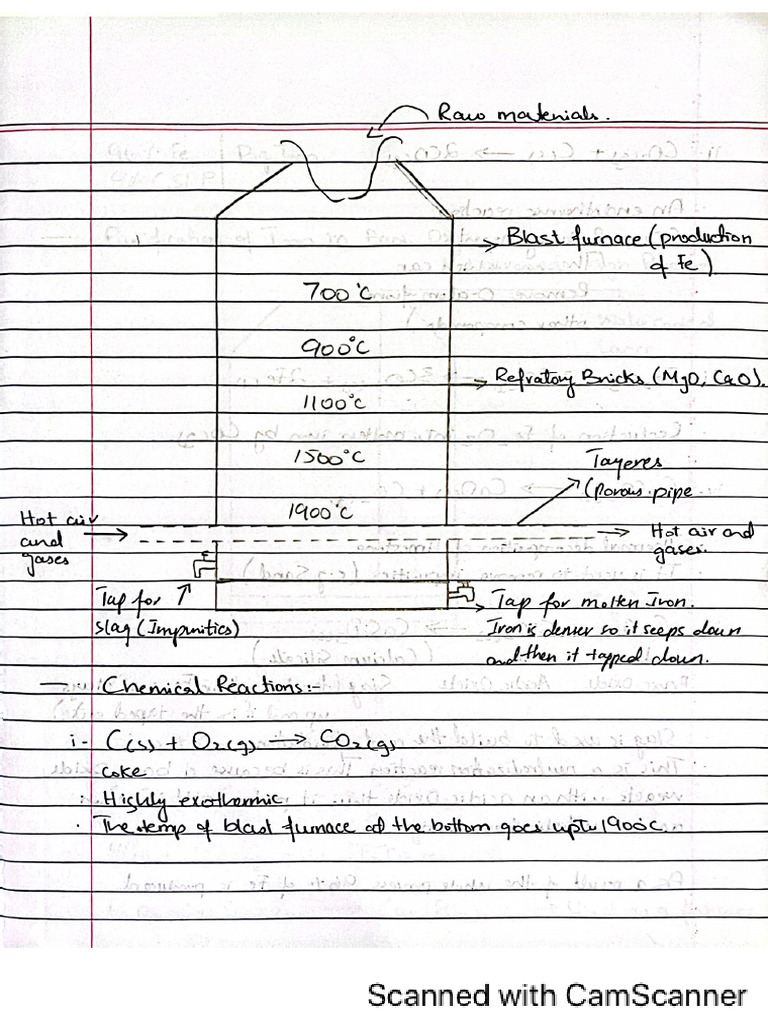 Raw materials.
Blast furnace (production
of Fe)
700°C
900°C
Refratory Bricks (MgO, CaO).
1100°C
1500°C
Tayeres
(Porous pipe
1900°C
Hot air
and
gases
Hot air and
gases.
Tap for
slag (Impurities)
Tap for molten Iron.
Iron is denser so it seeps down
and then it tapped down.
Chemical Reactions:-
i- C(s) + O2(g) → CO2(g)
coke
· Highly exothermic
· The temp of blast furnace at the bottom goes upto 1900°C.
Scanned with CamScanner